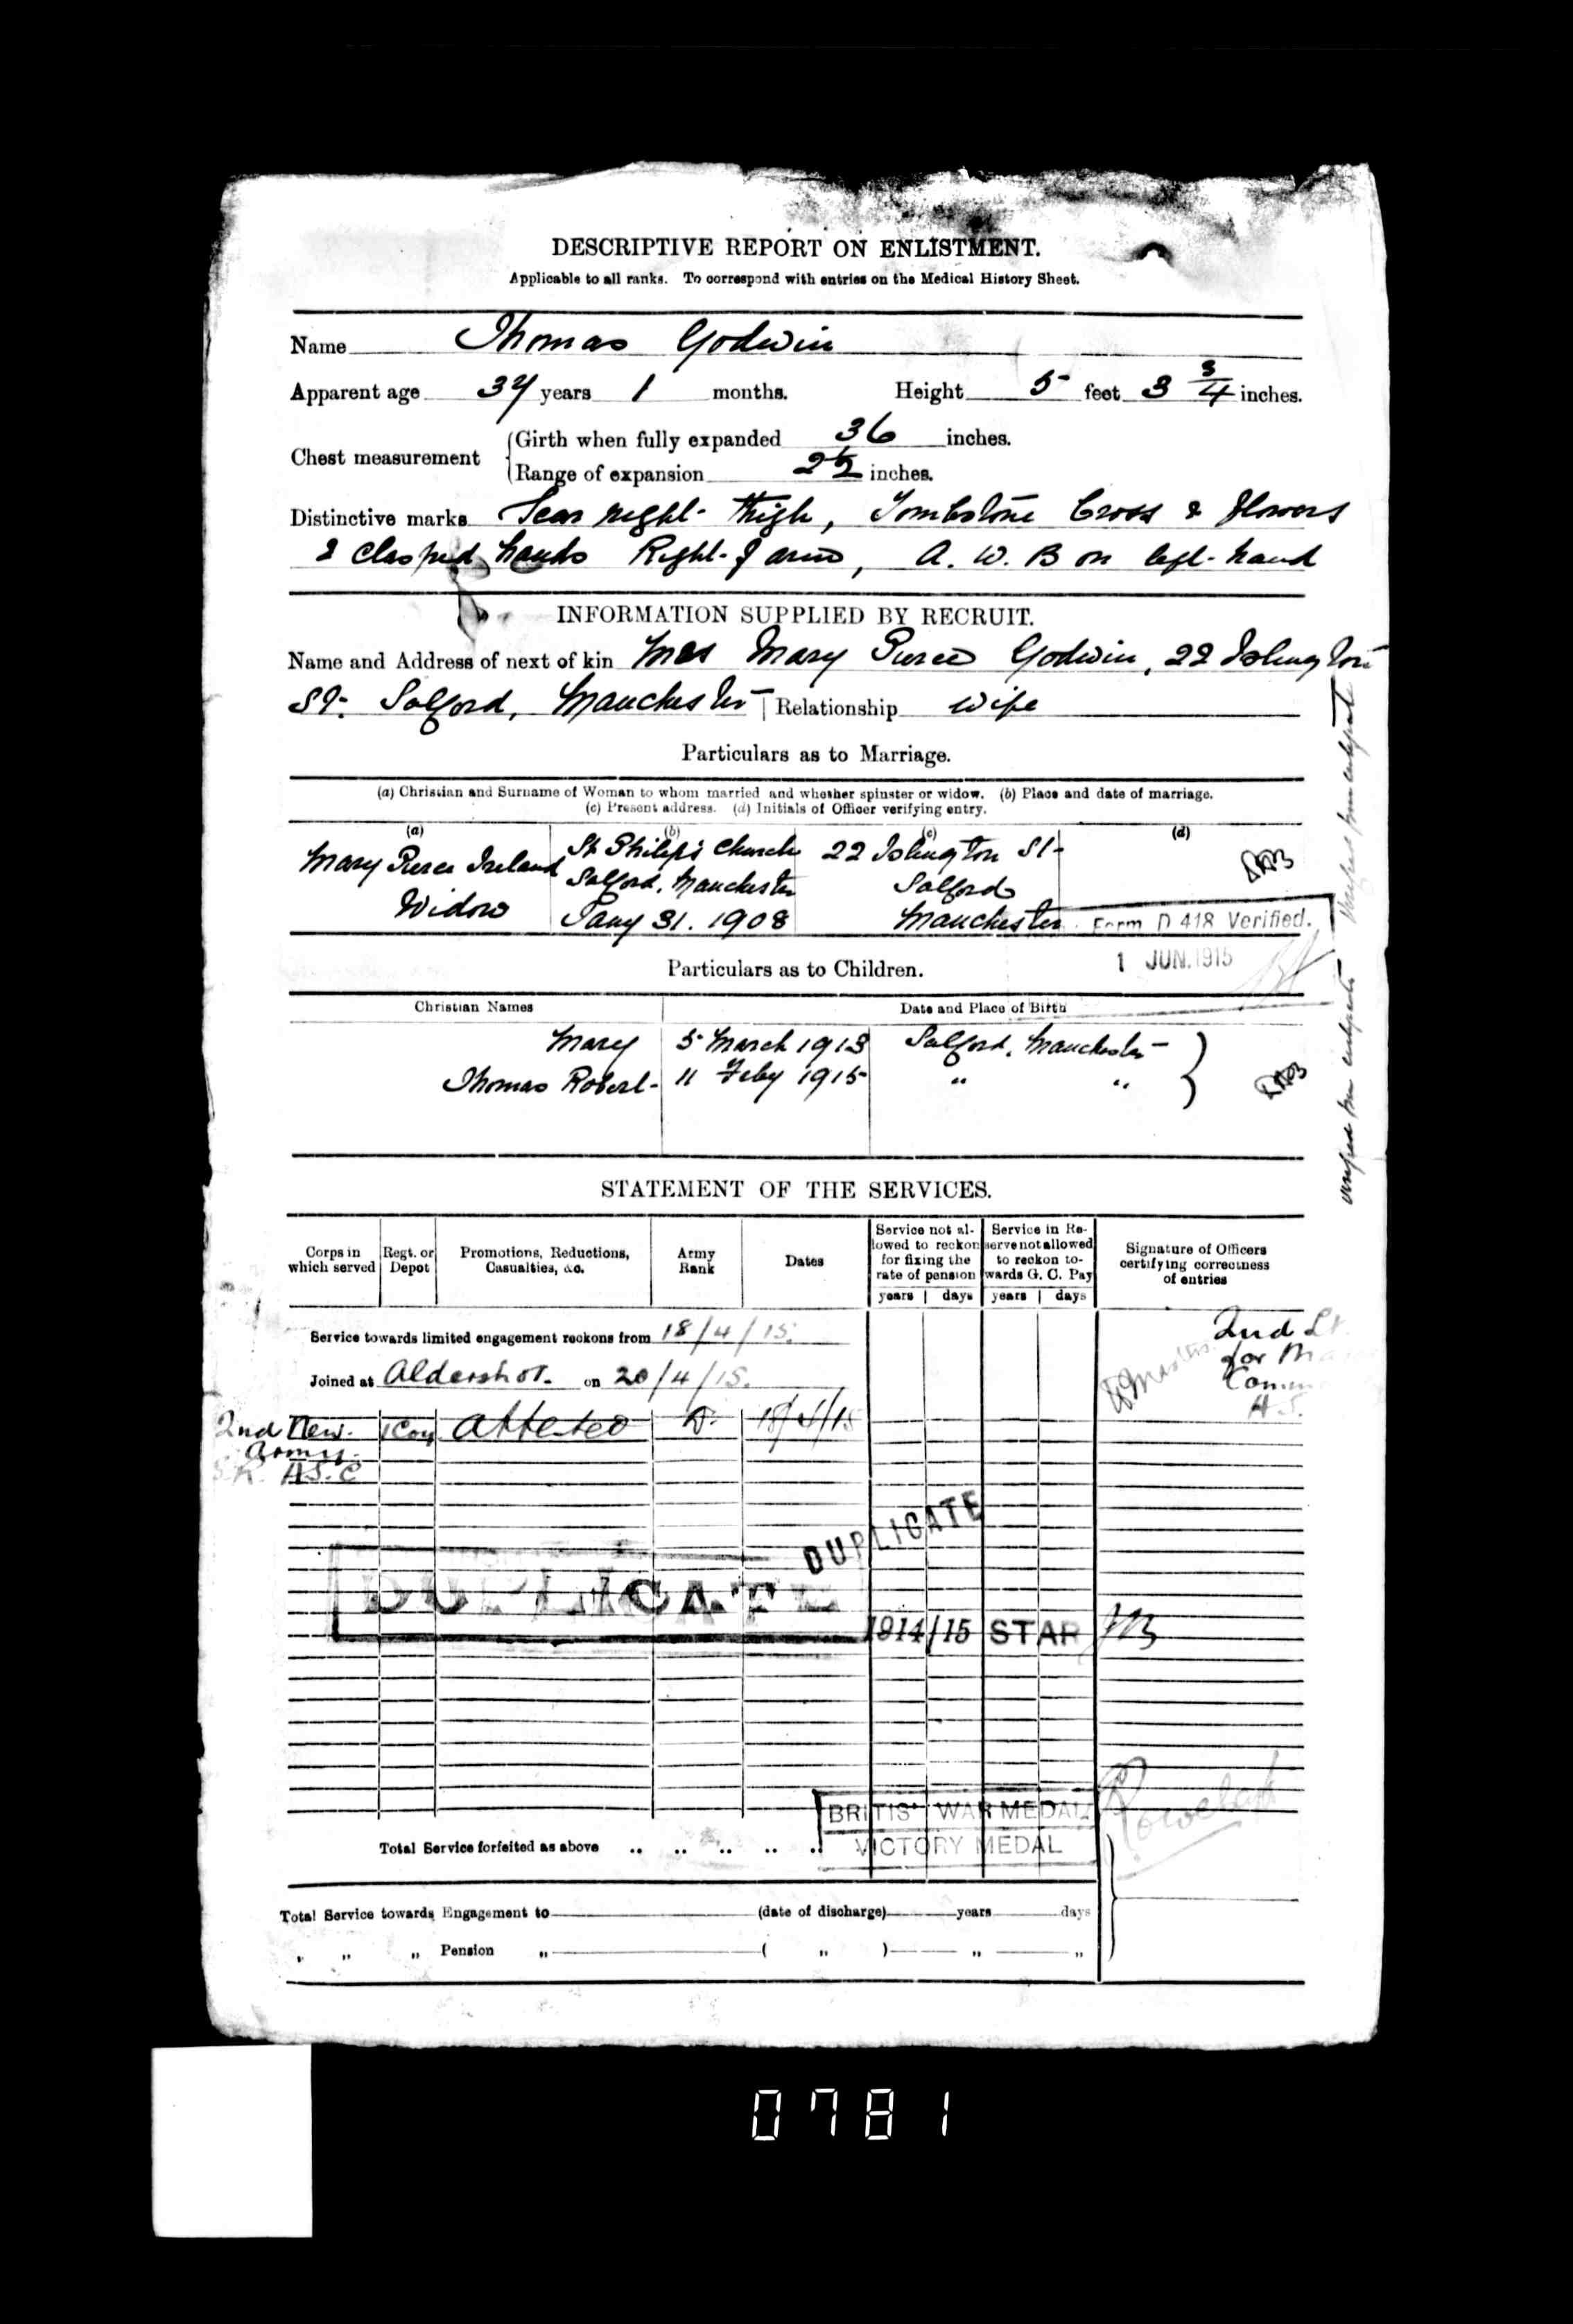 DESCRIPTIVE REPORT ON ENLISTMENT.
Applicable to all ranks. To correspond with entries on the Medical History Sheet.
Name Thomas Godwin
Apparent age 37 years 1 months. Height 5 feet 3 3/4 inches.
Chest measurement
Girth when fully expanded 36 inches.
Range of expansion 2½ inches.
Distinctive marks Scar right thigh, Tombstone Cross & flowers
& clasped hands Right f arm, A. W. B on left hand
INFORMATION SUPPLIED BY RECRUIT.
Name and Address of next of kin Mrs Mary Pierce Godwin, 22 Islington
St. Salford, Manchester Relationship wife
Particulars as to Marriage.
(a) Christian and Surname of Woman to whom married and whether spinster or widow. (b) Place and date of marriage.
(c) Present address. (d) Initials of Officer verifying entry.
(a) (b) (c) (d)
Mary Pierce Ireland St Philip's Church 22 Islington St
Salford, Manchester Salford
Widow Jany 31. 1908 Manchester
Form D 418 Verified.
1 JUN. 1915
Particulars as to Children.
Christian Names Date and Place of Birth
Mary 5 March 1913 Salford, Manchester
Thomas Robert 11 Feby 1915 " "
STATEMENT OF THE SERVICES.
Corps in which served
Regt. or Depot
Promotions, Reductions, Casualties, &c.
Army Rank
Dates
Service not allowed to reckon for fixing the rate of pension
Service in Reserve not allowed to reckon towards G. C. Pay
Signature of Officers certifying correctness of entries
years days years days
Service towards limited engagement reckons from 18/4/15.
2nd Lt.
for
Joined at Aldershot. on 20/4/15.
2nd New. Coy Attested 18/4/15
Army.
A.S.C
DUPLICATE
DUPLICATE
1914/15 STAR
BRITISH WAR MEDAL
VICTORY MEDAL
Total Service forfeited as above .. .. .. .. ..
Total Service towards Engagement to (date of discharge) years days
" " " Pension " ( " ) " "
0781